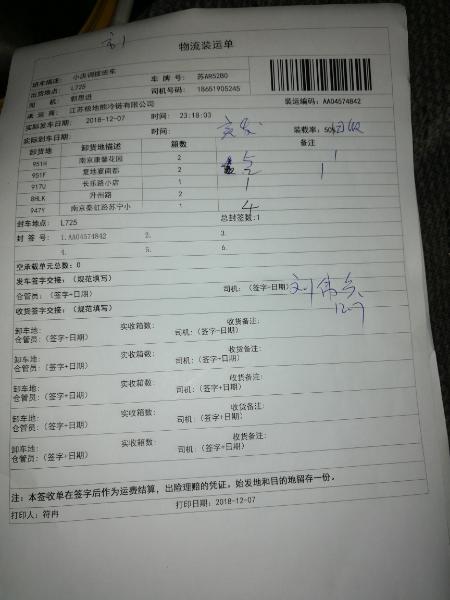 刘
物流装运单
班车描述: 小店调拨班车 车 牌 号: 苏AR52B0
出货地点: L725 司机号码: 18651905245
司 机: 郭思进
承 运 商: 江苏极地熊冷链有限公司 装运编码: AA04574842
实际发车日期: 2018-12-07 时间: 23:18:03
实际到车日期: 时间: 实发 装载率: 50% 回收
卸货地 卸货地描述 箱数 备注
951H 南京康馨花园 2 1
951F 复地宴南都 2 1
917U 长乐路小店 1 1
8HLK 升州路 2
947Y 南京秦虹路苏宁小 1 4
封车地点: L725 总封签数:1
封 签 号: 1.AA04574842 2. 3.
4. 5. 6.
空承载单元总数: 0
发车签字交接: (规范填写)
仓管员: (签字+日期) 司机: (签字+日期) 刘伟
12.7
收货签字交接: (规范填写)
卸车地: 实收箱数: 收货备注:
仓管员: (签字+日期) 司机: (签字+日期)
卸车地: 实收箱数: 收货备注:
仓管员: (签字+日期) 司机: (签字+日期)
卸车地: 实收箱数: 收货备注:
仓管员: (签字+日期) 司机: (签字+日期)
卸车地: 实收箱数: 收货备注:
仓管员: (签字+日期) 司机: (签字+日期)
卸车地: 实收箱数: 收货备注:
仓管员: (签字+日期) 司机: (签字+日期)
注: 本签收单在签字后作为运费结算, 出险理赔的凭证。始发地和目的地留存一份。
打印人: 符冉 打印日期: 2018-12-07